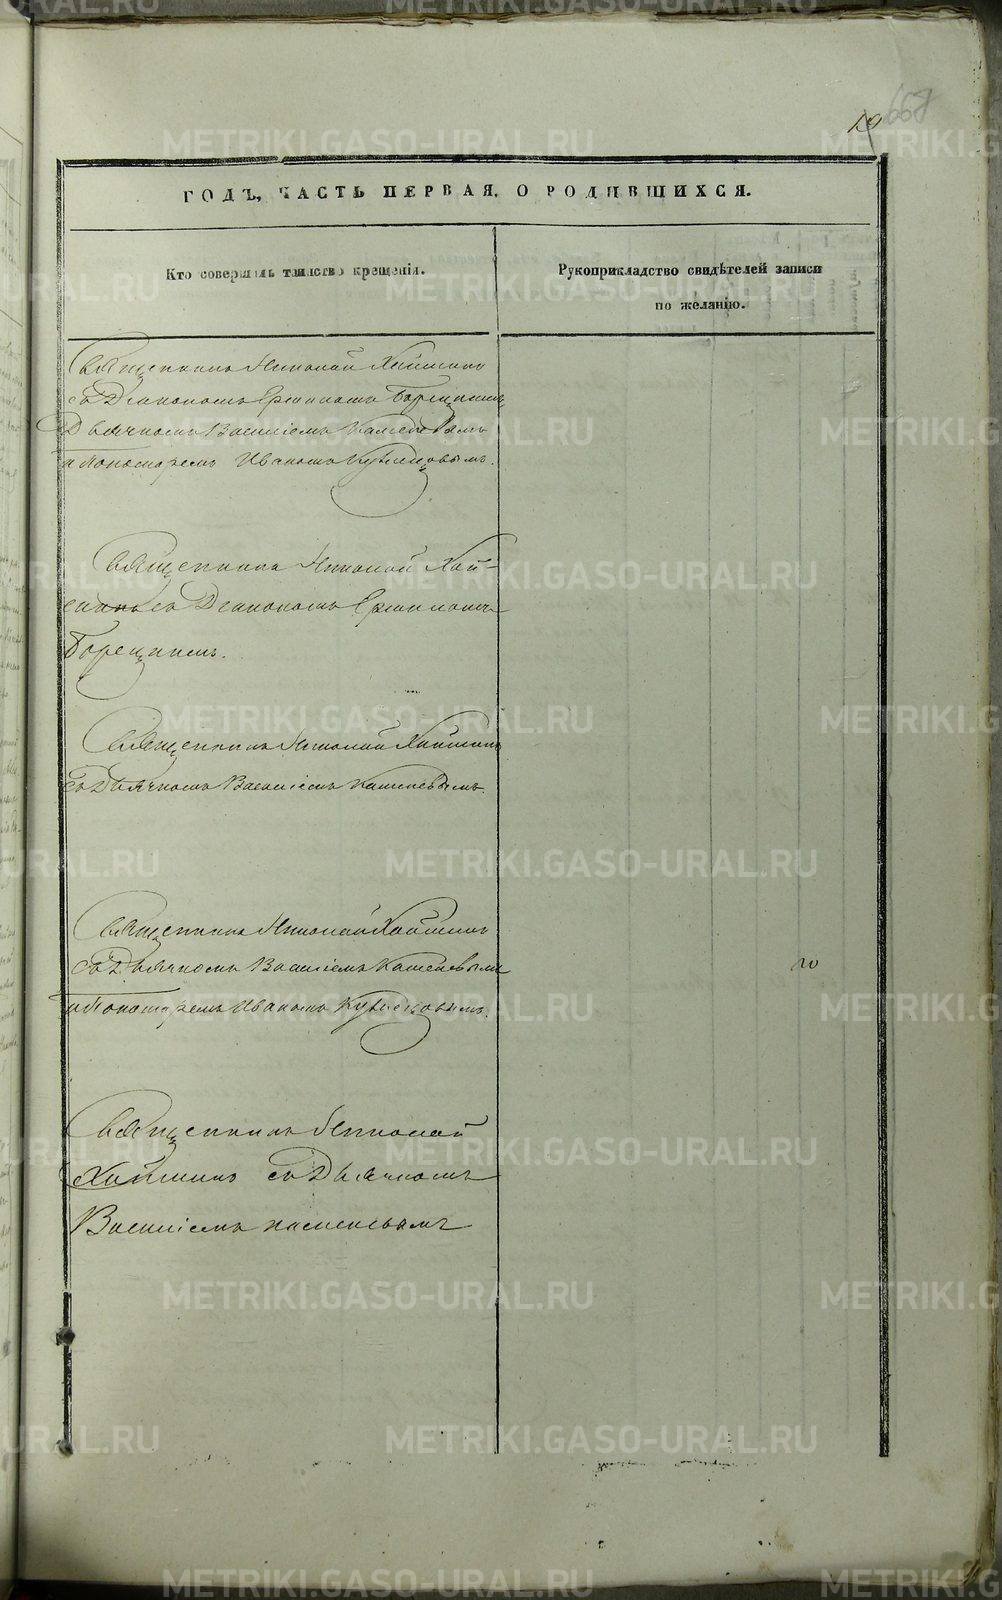 668
19
ГОДЪ, ЧАСТЬ ПЕРВАЯ, О РОДИВШИХСЯ.
Кто совершалъ таинство крещенія.
Рукоприкладство свидѣтелей записи
по желанію.
Священникъ Николай Хайминъ
съ Діакономъ Ермиломъ Борецкимъ
Дьячкомъ Василіемъ Каменевымъ
и Пономаремъ Иваномъ Кузнецовымъ.
Священникъ Николай Хай-
минъ съ Діакономъ Ермиломъ
Борецкимъ.
Священникъ Николай Хайминъ
съ Дьячкомъ Василіемъ Каменевымъ.
Священникъ Николай Хайминъ
съ Дьячкомъ Василіемъ Каменевымъ
и Пономаремъ Иваномъ Кузнецовымъ.
Священникъ Николай
Хайминъ съ Дьячкомъ
Василіемъ Каменевымъ
METRIKI.GASO-URAL.RU